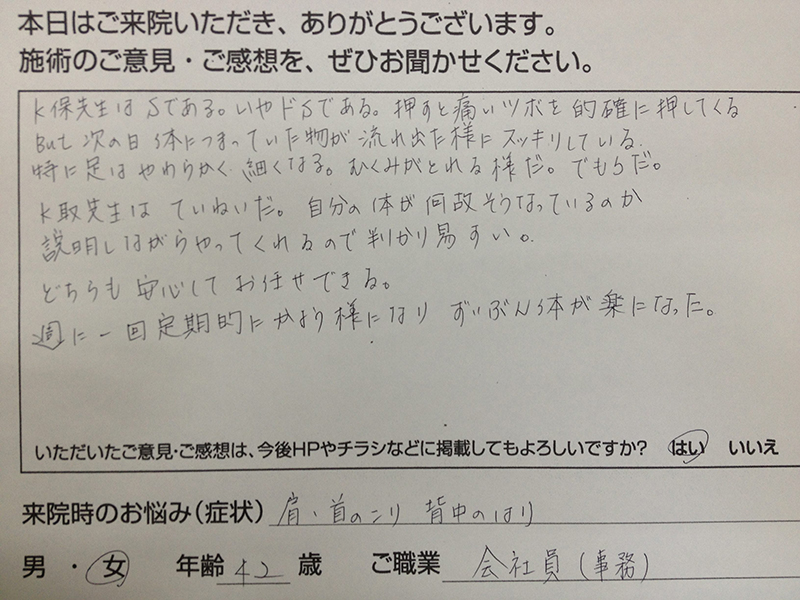 本日はご来院いただき、ありがとうございます。
施術のご意見・ご感想を、ぜひお聞かせください。
K保先生はSである。いやドSである。押すと痛いツボを的確に押してくる
But 次の日 体につまっていた物が流れ出た様にスッキリしている。
特に足はやわらかく細くなる。むくみがとれる様だ。でもSだ。
K取先生はていねいだ。自分の体が何故そうなっているのか
説明しながらやってくれるので判かり易すい。
どちらも安心してお任せできる。
週に一回定期的にかよう様になりずいぶん体が楽になった。
いただいたご意見・ご感想は、今後HPやチラシなどに掲載してもよろしいですか? はい いいえ
来院時のお悩み(症状) 肩・首のこり 背中のはり
男・女 年齢 42 歳 ご職業 会社員(事務)